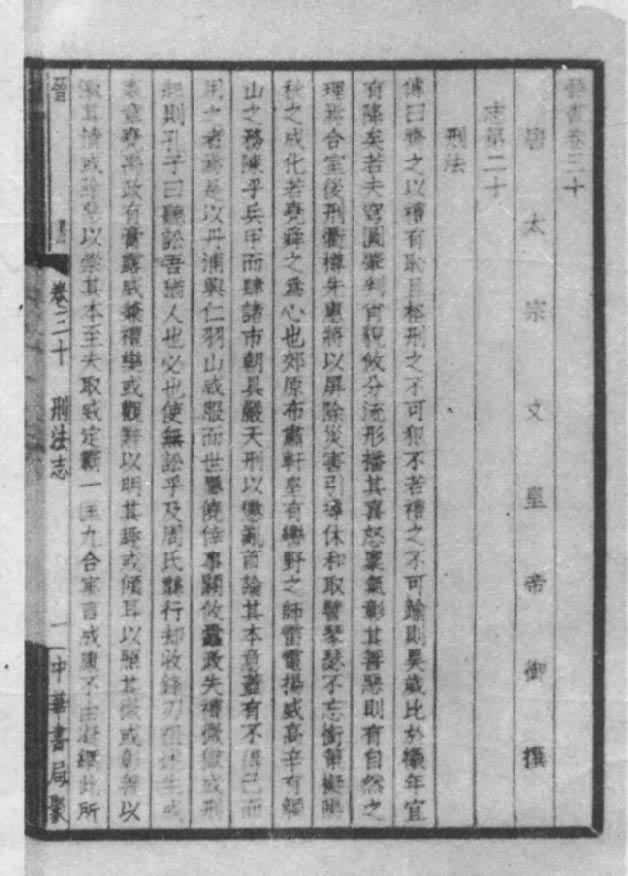 晉書卷三十
唐太宗文皇帝御撰
志第二十
刑法
傳曰齊之以禮有恥且格刑之不可犯不若禮之不可踰則昊歲比於犧年宜
有降矣若夫穹圓肇判宵貌攸分流形播其喜怒稟氣彰其善惡則有自然之
理焉念室後刑衢樽先惠將以屏除災害引導休和取譬琴瑟不忘銜策擬陽
秋之成化若堯舜之爲心也郊原布肅軒皇有轡野之師雷電揚威高辛有觸
山之務陳乎兵甲而肆諸市朝具嚴天刑以懲亂首論其本意蓋有不得已而
用之者焉是以丹浦興仁羽山咸服而世屬僥倖事關攸蠹政失禮微獄成刑
起則孔子曰聽訟吾猶人也必也使無訟乎及周氏龔行卻收鋒刃祖述生成
憲章堯禹政有膏露威兼禮樂或觀辭以明其趣或傾耳以照其微或彰善以
激其情或除惡以崇其本至夫取威定霸一匡九合寓言成康不由凝網此所
晉書 卷三十 刑法志 一 中華書局聚